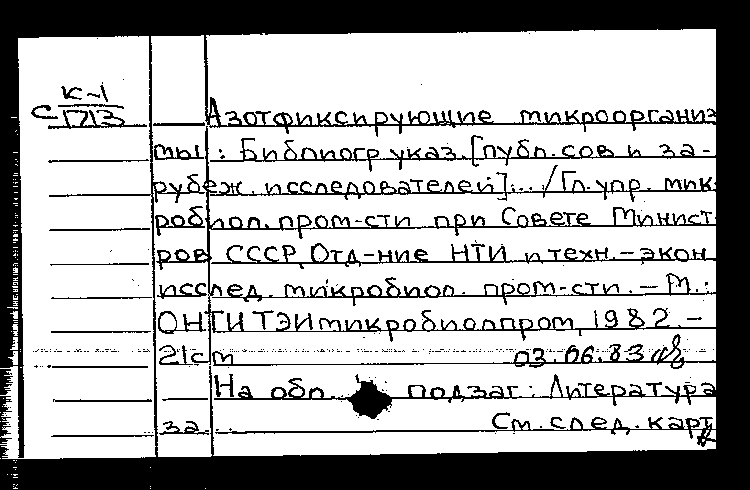 К-1
С П13
Азотфиксирующие микроорганиз
мы : Библиогр.указ.[публ.сов и за-
рубеж. исследователей]... /Гл.упр. мик-
робиол.пром-сти при Совете Минист-
ров СССР, Отд-ние НТИ и техн.-экон.
исслед. микробиол. пром-сти. – М.:
ОНТИТЭИмикробиолпром, 1982.–
21см 03.06.83
На обл. подзаг.: Литература
за... См.след.карт